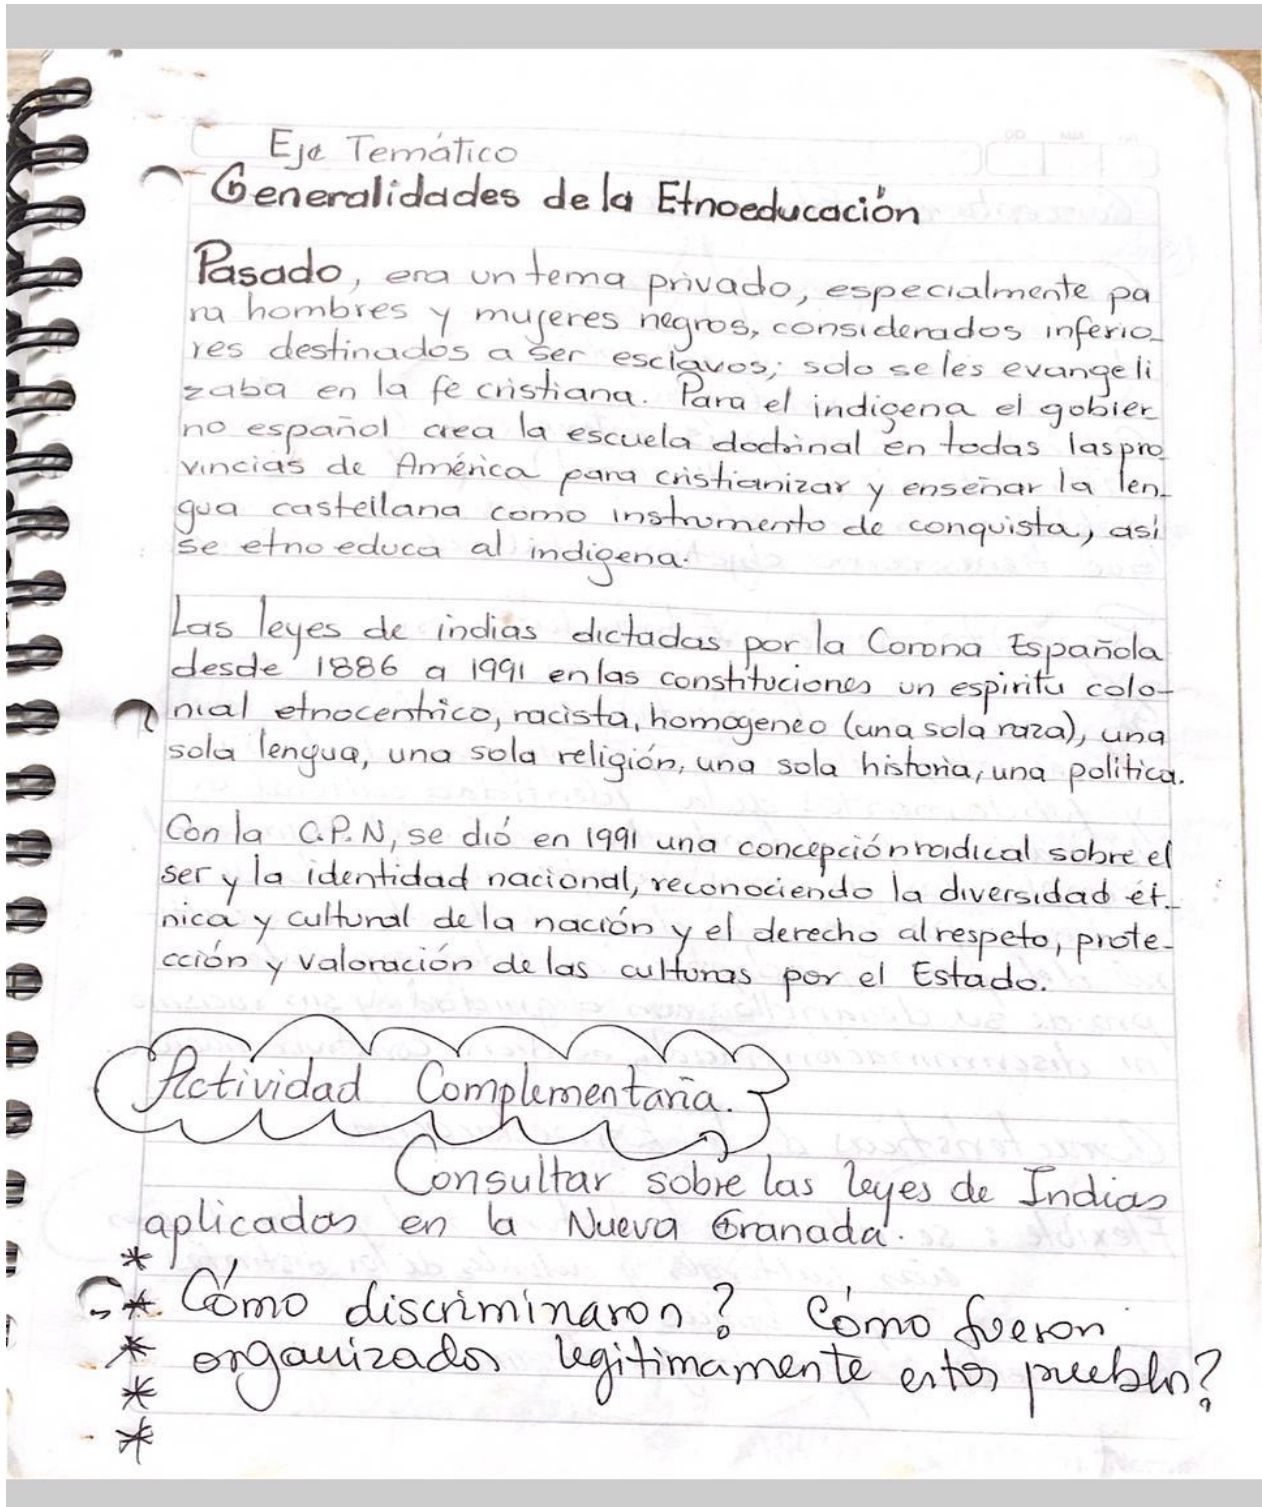 Eje Temático
Generalidades de la Etnoeducación
Pasado, era un tema privado, especialmente pa
ra hombres y mujeres negros, considerados inferio-
res destinados a ser esclavos; solo se les evangeli
zaba en la fe cristiana. Para el indigena el gobier
no español crea la escuela doctrinal en todas las pro
vincias de América para cristianizar y enseñar la len-
gua castellana como instrumento de conquista, así
se etnoeduca al indigena.
Las leyes de indias dictadas por la Corona Española
desde 1886 a 1991 en las constituciones un espiritu colo-
nial etnocentrico, racista, homogeneo (una sola raza), una
sola lengua, una sola religión, una sola historia, una politica.
Con la C.P.N, se dió en 1991 una concepción radical sobre el
ser y la identidad nacional, reconociendo la diversidad ét-
nica y cultural de la nación y el derecho al respeto, prote-
cción y valoración de las culturas por el Estado.
Actividad Complementaria.
Consultar sobre las leyes de Indias
aplicadas en la Nueva Granada.
*
* Cómo discriminaron? Cómo fueron
* organizados legitimamente estos pueblos?
*
*